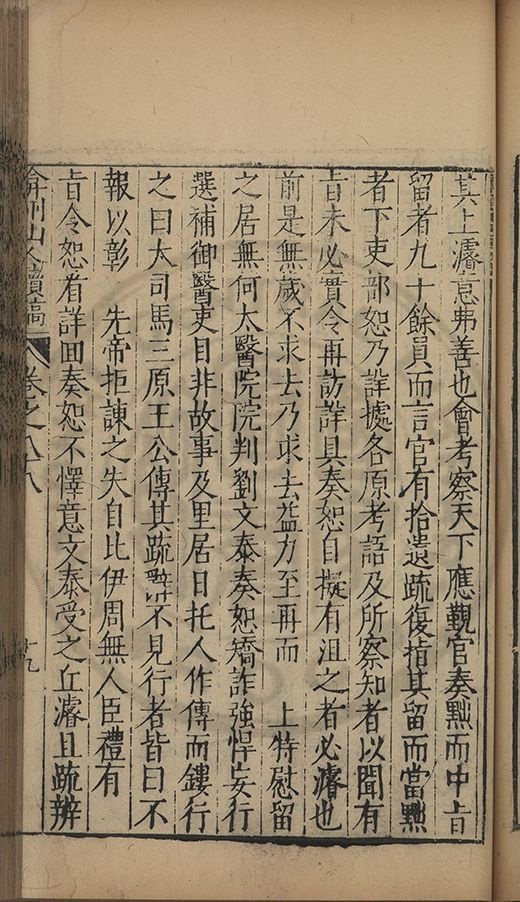 其上濬意弗善也會考察天下應覲官奏黜而中旨
留者九十餘員而言官有拾遺疏復指其留而當黜
者下吏部恕乃詳據各原考語及所察知者以聞有
旨未必實令再訪詳具奏恕自擬有沮之者必濬也
前是無歲不求去乃求去益力至再而　上特慰留
之居無何太醫院院判劉文泰奏恕矯詐強悍妄行
選補御醫吏目非故事及里居日托人作傳而鏤行
之曰大司馬三原王公傳其疏留不見行者皆曰不
報以彰　先帝拒諫之失自比伊周無人臣禮有
旨令恕看詳回奏恕不懌意文泰受之丘濬且疏辨
弇州山人續稿　卷之八十八　十九